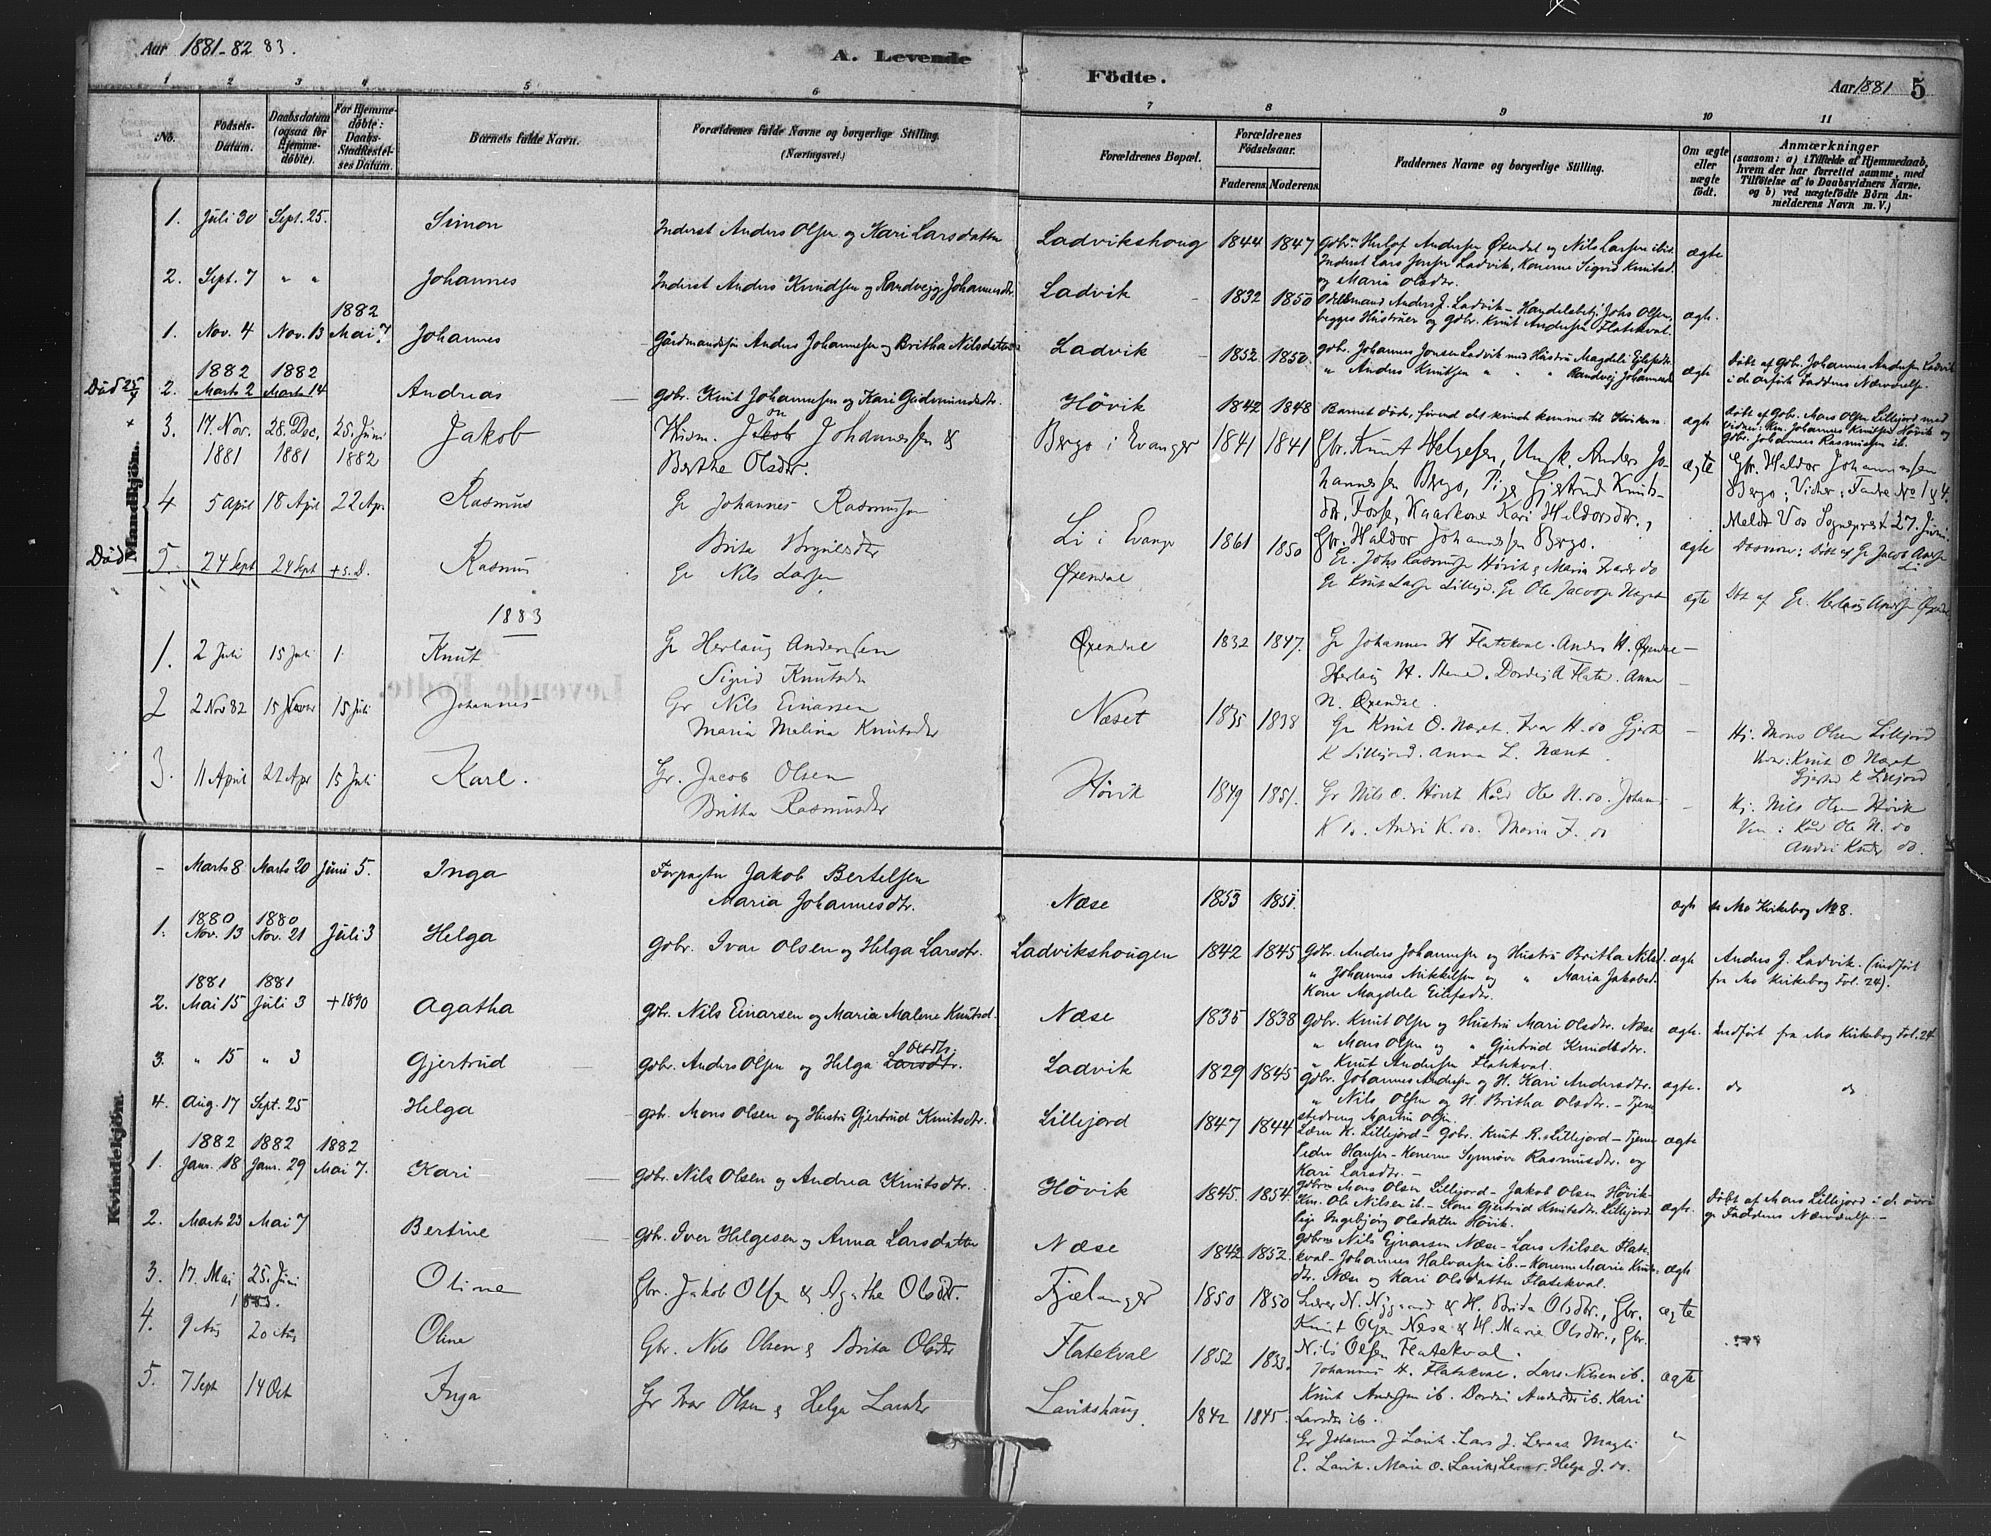 Aar 1881-82 83.
A. Levende
Födte.
Aar 1881
5
1 2 3 4 5 6 7 8 9 10 11
No.
Födsels-Datum.
Daabsdatum (ogsaa for Hjemme-döbte).
For Hjemme-döbte: Daabs-Stadfæstel-ses Datum.
Barnets fulde Navn.
Forældrenes fulde Navne og borgerlige Stilling. (Næringsvei.)
Forældrenes Bopæl.
Forældrenes Födselsaar.
Faderens. Moderens.
Faddernes Navne og borgerlige Stilling.
Om ægte eller uægte födt.
Anmærkninger
(saasom: a) i Tilfælde af Hjemmedaab, hvem der har forrettet samme, med Tilföielse af to Daabsvidners Navne. og b) ved uægtefödte Börn An-melderens Navn m. V.)
Mandkjön.
1. Juli 30 Sept. 25. Simon Inderst Anders Olsen og Kari Larsdatter Ladvikshoug 1844 1847 Gdbr. Herlof Andersen Øxendal og Nils Larsen ibid. Inderst Lars Jensen Ladvik, Konerne Sigrid Knutsd. og Maria Olsdtr. ægte
2. Sept. 7 " " Johannes Inderst Anders Knudsen og Randveig Johannesdtr. Ladvik 1832 1850 Odelsmand Anders J. Ladvik - Handelsbetj. Johs Olsen, begges Hustruer og Gdbr. Knut Andersen Flatekval. ægte.
1882
1. Nov. 4 Nov. 13 Mai 7 Johannes Gårdmandssøn Anders Johannesen og Britha Nilsdatter Ladvik 1852 1850. Gdbr. Johannes Jonsen Ladvik med Hustru Magdeli Eilefsdtr. " Anders Knutsen " " Randveig Johannesd. ægte Døbt af Gdbr. Johannes Andersen Ladvik
1882 1882
Død 25/7 2. Marts 2 Marts 14 Andreas Gdbr. Knut Johannesen og Kari Gudmundsdtr. Høvik 1842 1848 Barnet døde, førend det kunde komme til Kirken. ægte Døbt af Gdbr. Mons Olsen Lillejord med Vidner: Johannes Knutsen Høvik og Gdbr. Johannes Rasmussen ib.
3. 17. Nov. 1881 28. Dec. 1881 25. Juni 1882 Jakob Husm. Jakob Johannessen & Bertha Olsdtr. Bergo i Evanger 1841 1841 Gbr. Knut Helgesen, Ungk. Anders Johannessen Bergo, Pige Gjertrud Knutsdtr. Fosse, Kaarkone Kari Heldorsdtr., Gbr. Haldor Johannessen Bergo. ægte Gbr. Haldor Johannessen Bergo; Vidner: Faddre No 1 & 4. Meldt Vos Sognepræst 27. Juni.
4 5 April 18 April 22 Apr Rasmus Gr Johannes Rasmussen Brita Brynilsdtr Li i Evanger 1861 1850 Gr. Johs Rasmussen Høvik & Maria Ivarsdtr do ægte Døbt af Gr Jacob Li
Død 5. 24 Sept 24 Sept + s. D. Rasmus Gr Nils Larsen Øxendal Gr Knut Larsen Lillejd. Gr Ole Jacobsen Næset ægte Døbt af Gr. Herlaug Andersen Øxendal
1883
1. 2 Juli 15 Juli 1 Knut Gr Herlaug Andersen Sigrid Knutsdtr Øxendal 1832 1847. Gr Johannes H Flatekval. Anders H. Øxendal Herlaug H. Stene. Dordei A Flate. Anna N. Øxendal. -
2 2 Nov 82 15 Nover 15 Juli Johannes Gr Nils Einarsen Maria Malina Knutsdtr Næset 1835 1838 Gr Knut O. Næset. Ivar H. do Gjertr K Lillejord. Anna L. Næset. - Hj. Mons Olsen Lillejord Vidner: Knut O Næset Gjertrd K Lillejord
3. 11 April 22 Apr 15 Juli Karl. Gr. Jacob Olsen Britha Rasmusdtr Høvik 1849 1851. Gr Nils O. Høvik Kåd Ole N. do. Johans K do. Andri K. do. Maria J. do - Hj. Nils Olsen Høvik Vidn: Kåd Ole N. do Andri Knsdtr do.
Kvindekjön.
- Marts 8 Marts 20 Juni 5. Inga Forpagter Jakob Bertelsen Maria Johannesdtr. Næse 1853 1851. ægte se Mo Kirkebog No 8.
1880 1880
1. Nov. 13 Nov. 21 Juli 3 Helga Gdbr. Ivar Olsen og Helga Larsdtr. Ladvikshougen 1842 1845 Gdbr. Anders Johannesen og Hustru Britha Nilsd. " Johannes Mikkelsen og " Maria Jakobsd. Kone Magdele Eilefsdtr. ægte Anders J. Ladvik. (indført fra Mo Kirkebog Fol. 24).
1881 1881
2. Mai 15 Juli 3 +1890 Agatha Gdbr. Nils Einarsen og Maria Malene Knutsd. Næse 1835 1838 Gdbr. Knut Olsen og Hustru Mari Olsdtr. Næse " Mons Olsen og " Gjertrud Knudsdtr. " Knut Andersen Flatekval. ægte. Indført fra Mo Kirkebog Fol. 24
3. " 15 " 3 Gjertrud Gdbr. Anders Olsen og Helga Larsdtr. Olsdtr. Ladvik 1829 1845 Gdbr. Johannes Andersen og H. Kari Andersdtr. " Nils Olsen og H. Britha Olsdtr. - Tjenestedreng Martin Olsen. ægte. do do
4. Aug. 17 Sept. 25 Helga Gdbr. Mons Olsen og Hustru Gjertrud Knutsdtr. Lillejord 1847 1844 Lærer K. Lillejord - Gdbr. Knut R. Lillejord - Tjener Peder Hansen - Konerne Synnøve Rasmusdtr. og Kari Larsdtr. - ægte
1882 1882 1882
1. Janr. 18 Janr. 29 Mai 7. Kari Gdbr. Nils Olsen og Andrea Knutsdtr. Høvik 1845. 1854. Gdbr. Mons Olsen Lillejord - Jakob Olsen Høvik - Ole Nilsen ib. - Kone Gjertrud Knutsdtr. Lillejord Pige Ingebjørg Olsdatter Høvik. ægte. Døbt af Mons Lillejord i de øvrige Faddres Nærværelse. -
2. Marts 23 Mai 7 Bertine Gdbr. Iver Helgesen og Anna Larsdatter Næse 1842 1852. Gdbr. Nils Ejnarsen Næse - Lars Nilsen Flatekval - Johannes Halvorsen ib. - Konerne Marie Knutsdtr. Næse og Kari Olsdatter Flatekval. ægte
3. 17. Mai 25. Juni Oline Gbr. Jakob Olsen & Agathe Olsdtr. Fjælanger 1850 1850 Lærer N. Nygaard & H. Brita Olsdtr., Gbr. Knut Olsen Nese & H. Marie Olsdtr., Gbr. Nils Olsen Flatekval. ægte
1883.
4. 9 Aug 20 Aug Oline Gbr. Nils Olsen & Brita Olsdtr Flatekval 1852 1853. Johannes H. Flatekval. Lars Nilsen ib. Knut Andersen ib. Dordei Andersdtr ib. Kari Larsdtr ib. ægte
5. 7 Sept 14 Oct Inga Gr Ivar Olsen & Helga Larsdtr Lavikshaug. 1842 1845. Gr Johans J Lavik. Lars J. Magli E. Lavik. Marie O. Lavik Helga J. do. "